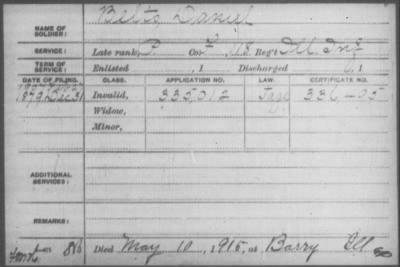 NAME OF SOLDIER: Belto Daniel
SERVICE: Late rank, P. Co. F, 118 Reg't Ill. Inf
TERM OF SERVICE: Enlisted , 1 Discharged , 1
DATE OF FILING. CLASS. APPLICATION NO. LAW. CERTIFICATE NO.
1879 Dec 31 Invalid, 335012
Widow,
Minor,
ADDITIONAL SERVICES:
REMARKS:
Died May 10, 1915, at Barry Ill